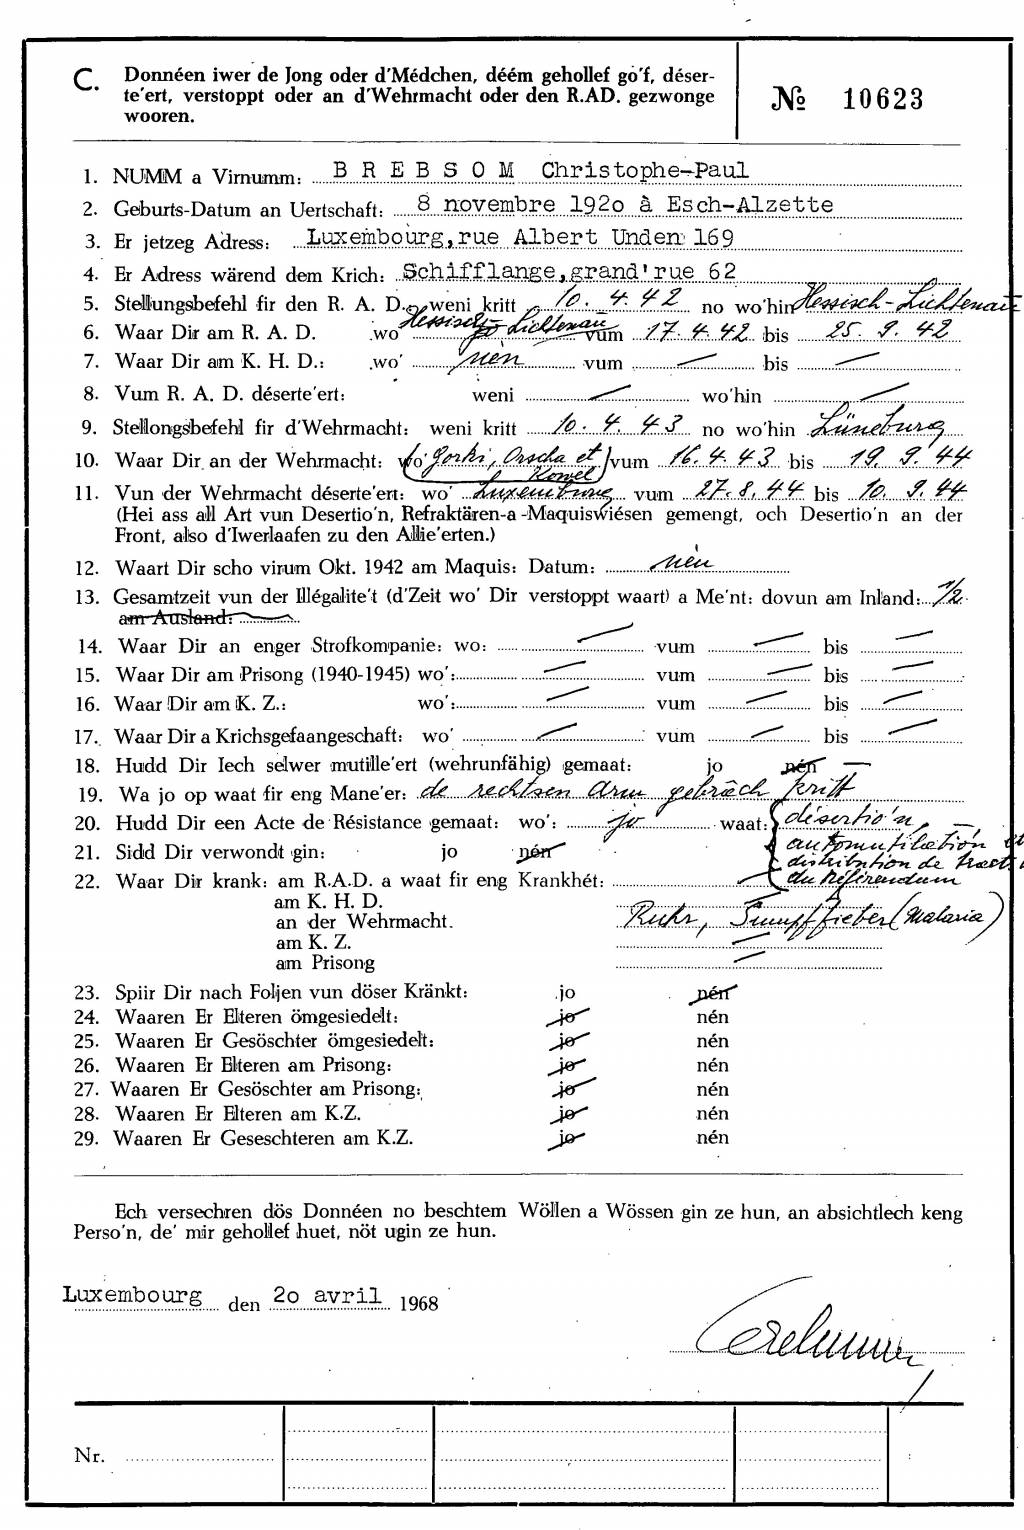 C. Donnéen iwer de Jong oder d'Médchen, déém gehollef go'f, déser-
te'ert, verstoppt oder an d'Wehrmacht oder den R.AD. gezwonge
wooren.
№ 10623
1. NUMM a Virnumm: B R E B S O M Christophe-Paul
2. Geburts-Datum an Uertschaft: 8 novembre 192o à Esch-Alzette
3. Er jetzeg Adress: Luxembourg,rue Albert Unden 169
4. Er Adress wärend dem Krich: Schifflange,grand'rue 62
5. Stellungsbefehl fir den R. A. D. weni kritt 10. 4. 42 no wo'hin Hessisch-Lichtenau
6. Waar Dir am R. A. D. wo' Hessisch Lichtenau vum 17. 4. 42 bis 25. 9. 42
7. Waar Dir am K. H. D.: wo' nén vum — bis —
8. Vum R. A. D. déserte'ert: weni — wo'hin —
9. Stellongsbefehl fir d'Wehrmacht: weni kritt 10. 4. 43 no wo'hin Lüneburg
10. Waar Dir an der Wehrmacht: wo' (Gorki, Orscha et Kowel) vum 16. 4. 43 bis 19. 9. 44
11. Vun der Wehrmacht déserte'ert: wo' Luxembourg vum 27. 8. 44 bis 10. 9. 44
(Hei ass all Art vun Desertio'n, Refraktären-a-Maquiswiésen gemengt, och Desertio'n an der
Front, also d'Iwerlaafen zu den Allie'erten.)
12. Waart Dir scho virum Okt. 1942 am Maquis: Datum: nén
13. Gesamtzeit vun der Illégalite't (d'Zeit wo' Dir verstoppt waart) a Me'nt: dovun am Inland: 1/2
am Ausland:
14. Waar Dir an enger Strofkompanie: wo: — vum — bis —
15. Waar Dir am Prisong (1940-1945) wo': — vum — bis —
16. Waar Dir am K. Z.: wo': — vum — bis —
17. Waar Dir a Krichsgefaangeschaft: wo' — vum — bis —
18. Hudd Dir Iech selwer mutille'ert (wehrunfähig) gemaat: jo nén —
19. Wa jo op waat fir eng Mane'er: de rechtsen Arm gebrach kritt
20. Hudd Dir een Acte de Résistance gemaat: wo': jo waat: désertio'n,
automutilatio'n et
distribution de tracts
du Référendum
21. Sidd Dir verwondt gin: jo nén
22. Waar Dir krank: am R.A.D. a waat fir eng Krankhét: —
am K. H. D. —
an der Wehrmacht. Ruhr, Sumpffieber (Malaria)
am K. Z. —
am Prisong —
23. Spiir Dir nach Foljen vun döser Kränkt: jo nén
24. Waaren Er Elteren ömgesiedelt: jo nén
25. Waaren Er Gesöschter ömgesiedelt: jo nén
26. Waaren Er Elteren am Prisong: jo nén
27. Waaren Er Gesöschter am Prisong: jo nén
28. Waaren Er Elteren am K.Z. jo nén
29. Waaren Er Geseschteren am K.Z. jo nén
Ech versechren dös Donnéen no beschtem Wöllen a Wössen gin ze hun, an absichtlech keng
Perso'n, de' mir gehollef huet, nöt ugin ze hun.
Luxembourg den 2o avril 1968
Nr.